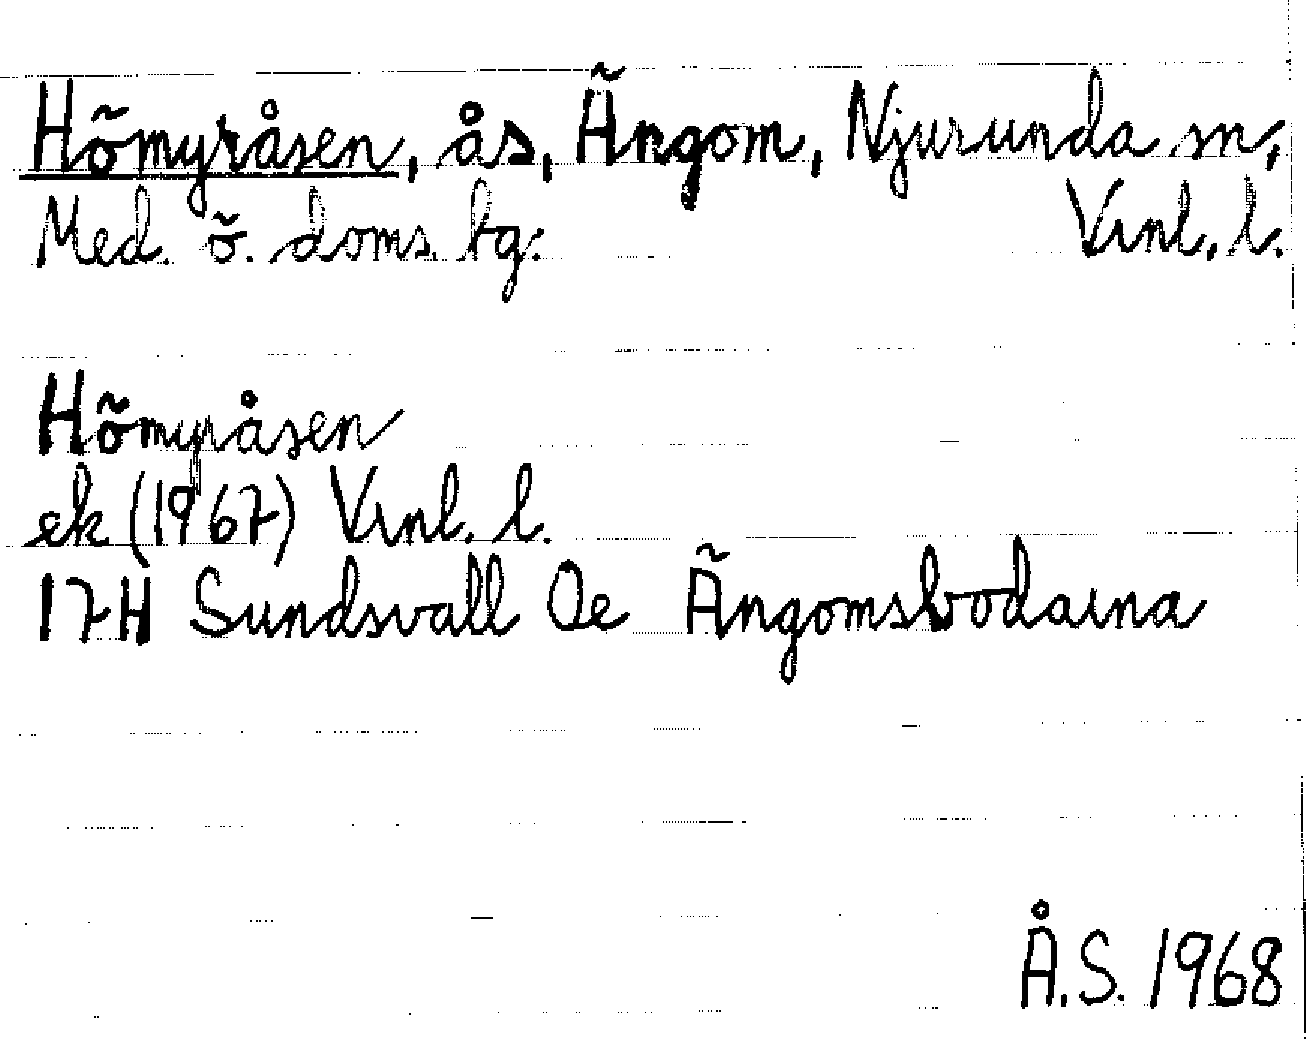 Hömyråsen, ås, Ängom, Njurunda sn,
Med. ö. doms. bg: Vrnl. l.
Hömyråsen
ek (1967) Vrnl. l.
17H Sundsvall Oe Ängomsbodarna
Å.S. 1968